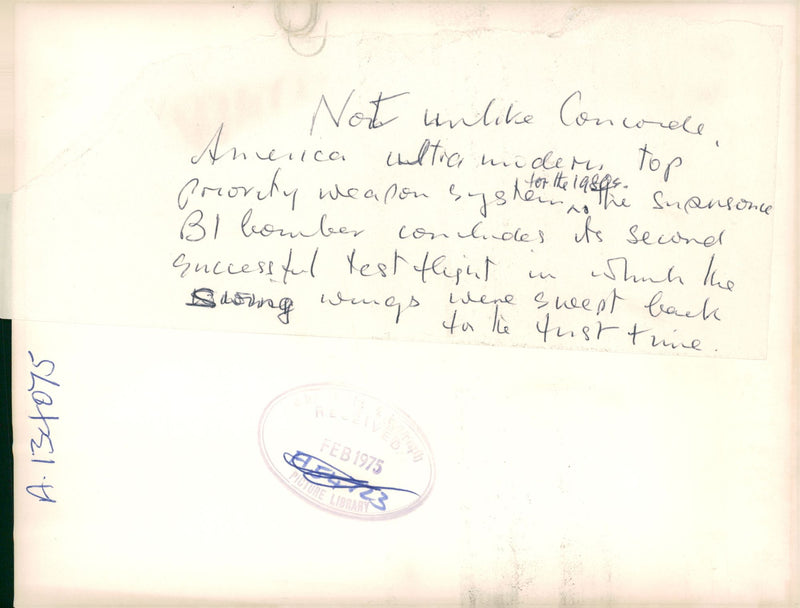 Not unlike Concorde,
America ultra modern top
priority weapon system for the 1980s. the supersonic
B1 bomber concludes its second
successful test flight in which the
Swing wings were swept back
for the first time.
A.134075
RECEIVED
FEB 1975
PICTURE LIBRARY